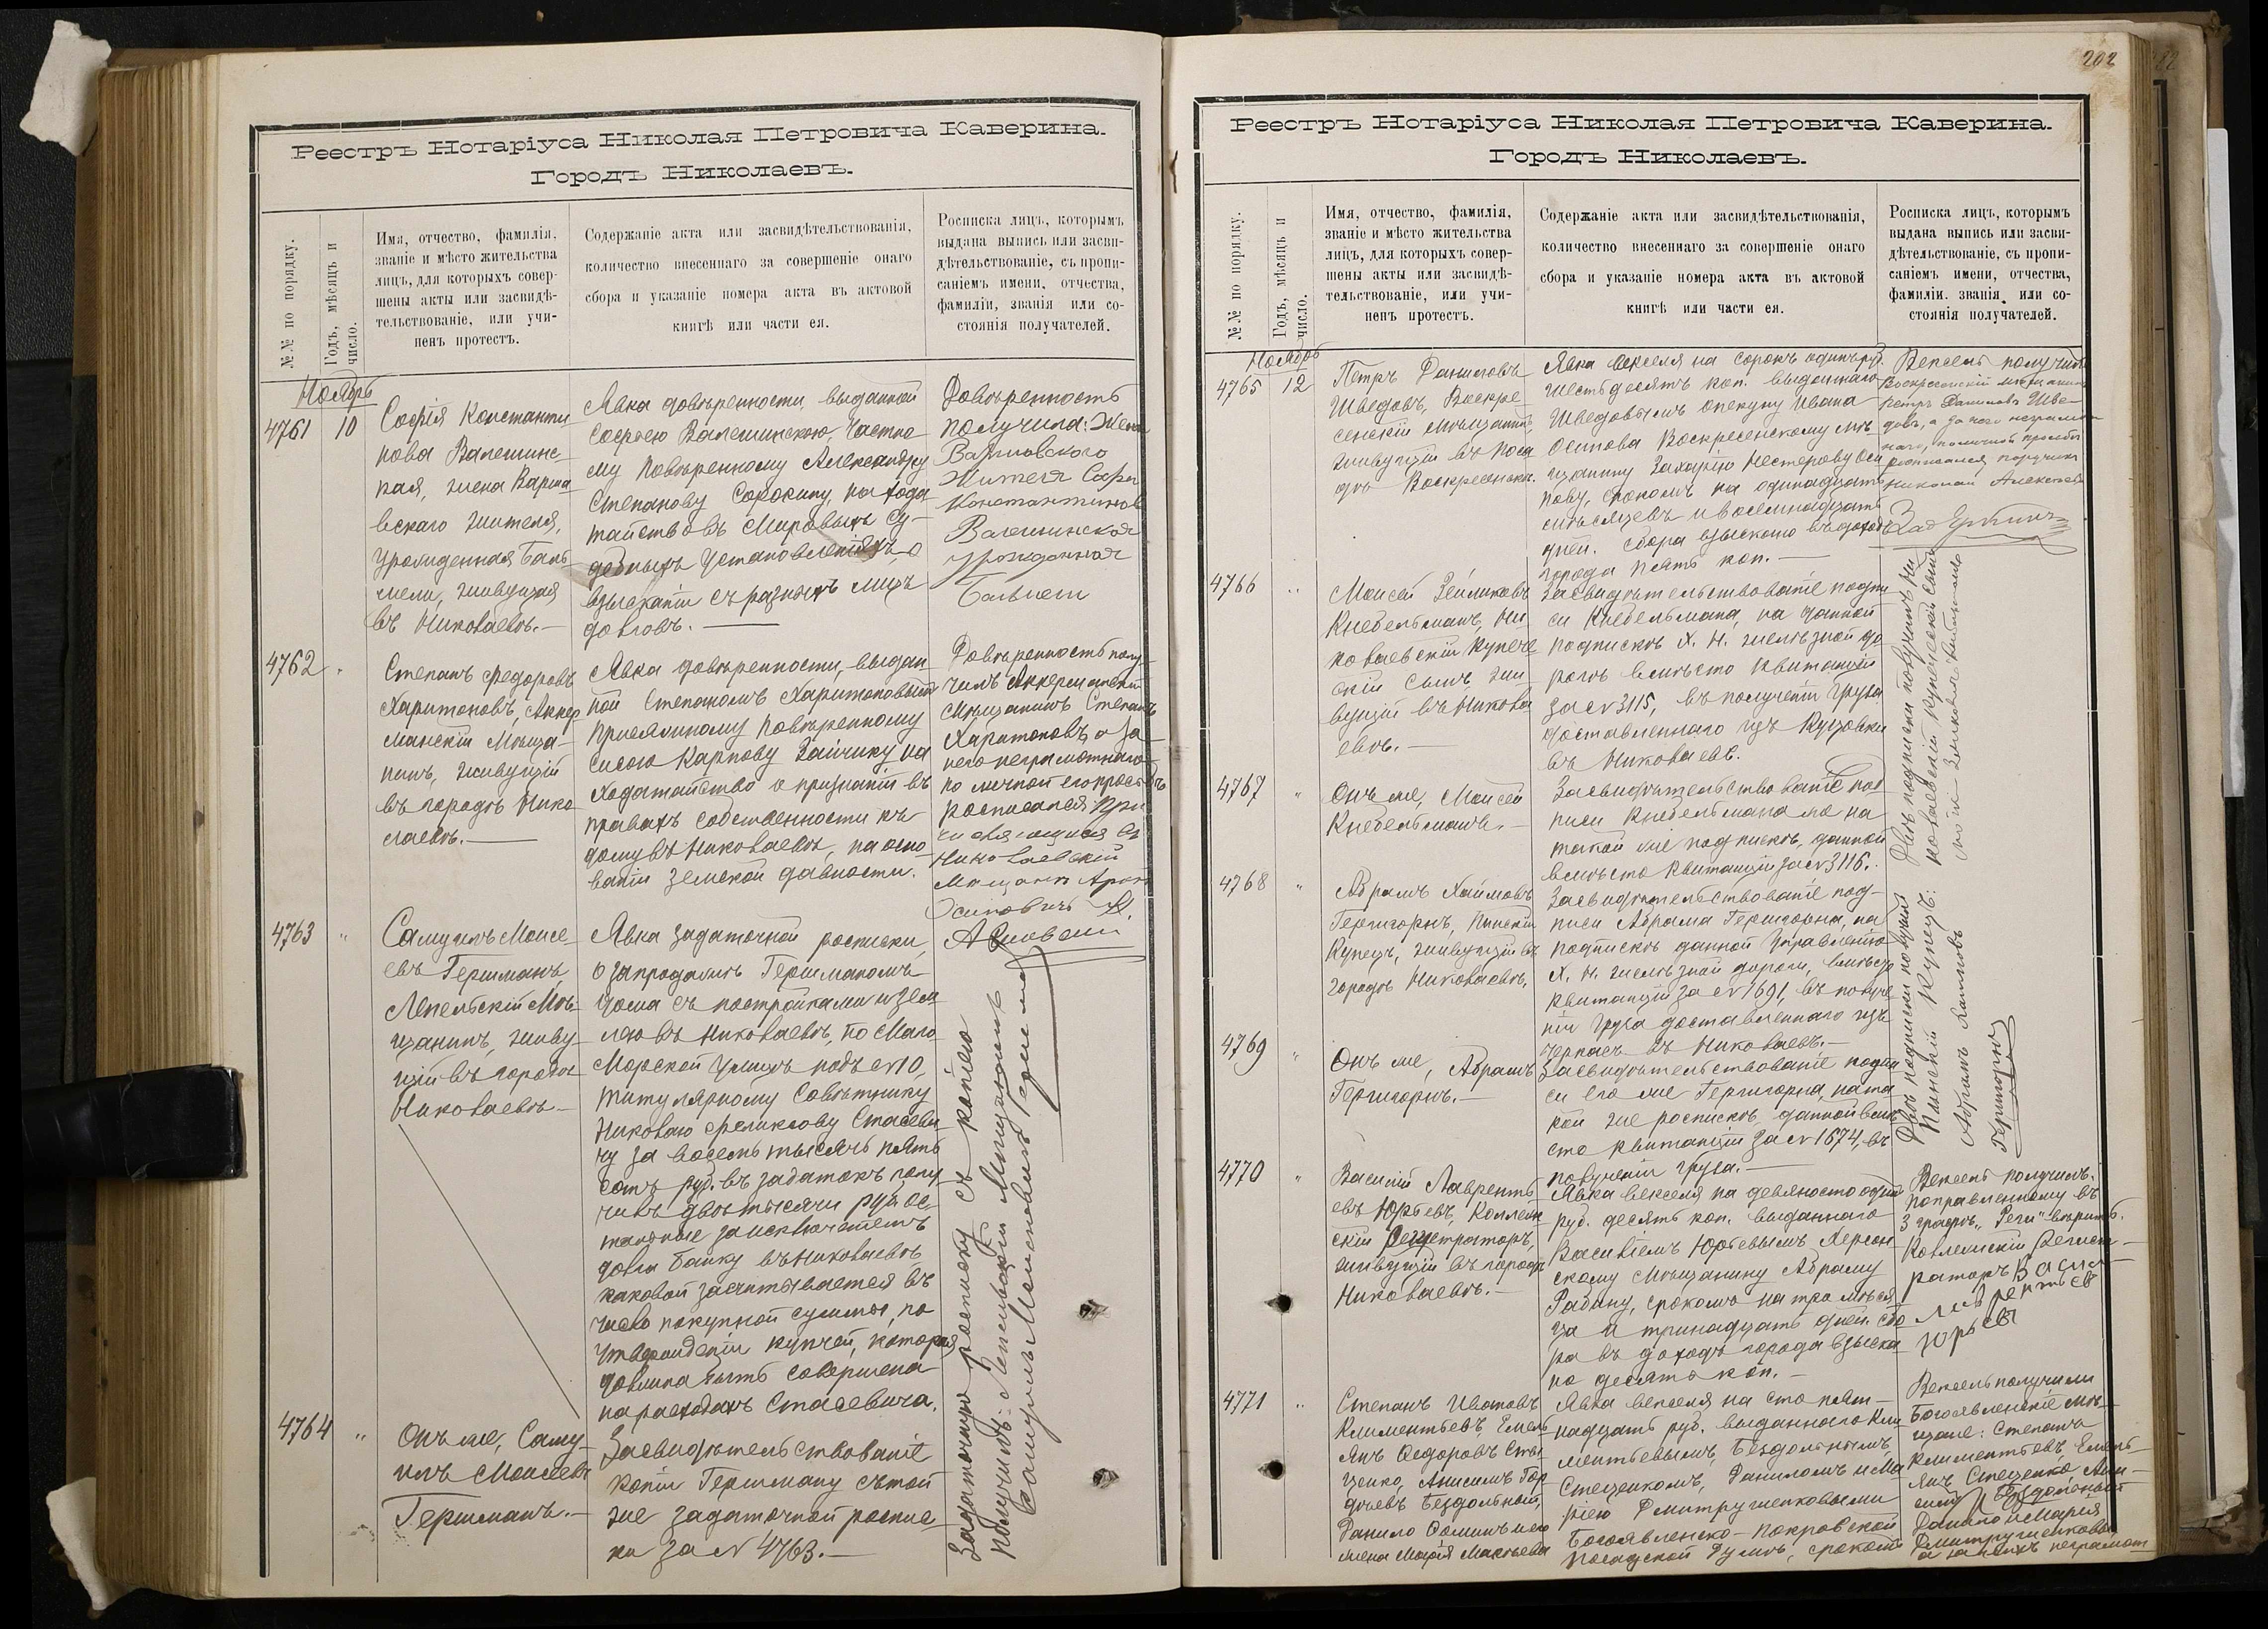 Реестръ Нотаріуса Николая Петровича Каверина.
Городъ Николаевъ.
№№ по порядку.
Годъ, мѣсяцъ и
число.
Имя, отчество, фамилія,
званіе и мѣсто жительства
лицъ, для которыхъ совер-
шены акты или засвидѣ-
тельствованіе, или учи-
ненъ протестъ.
Содержаніе акта или засвидѣтельствованія,
количество внесеннаго за совершеніе онаго
сбора и указаніе номера акта въ актовой
книгѣ или части ея.
Росписка лицъ, которымъ
выдана выпись или засви-
дѣтельствованіе, съ пропи-
саніемъ имени, отчества,
фамиліи, званія или со-
стоянія получателей.
Ноябрь
4761 10
Софія Константи
нова Валешинс
кая, жена Варша
вскаго жителя,
урожденная Баль
мели, живущая
въ Николаевѣ.—
Явка довѣренности, выданной
Софіею Валешинскою, Частно
му повѣренному Александру
Степанову Сорокину, на хода
тайство въ Мировыхъ Су-
дебныхъ Установленіяхъ о
взысканіи съ разныхъ лицъ
долговъ.—
Довѣренность
получила: Жена
Варшавского
Жителя Софи
Константинов
Валешинская
урожденная
4762 "
Степанъ Федоровъ
Харитоновъ, Аккер
манскій Мѣща-
нинъ, живущій
въ городѣ Нико
лаевѣ.—
Явка довѣренности, выдан
ной Степаномъ Харитоновымъ
Присяжному Повѣренному
Сисою Карпову Зайчику на
ходатайство о признаніи въ
правахъ собственности къ
дому въ Николаевѣ, на осно
ваніи земской давности.
Довѣренность полу-
чилъ Аккерманскій
Мѣщанинъ Степанъ
Харитоновъ а за
него неграмотнаго
по личной его просьбѣ
росписался
Николаевскій
Мещанин Арон
Осипович
4763 "
Самуилъ Моисе-
евъ Гершманъ,
Лепельскій Мѣ-
щанинъ, живу-
щій въ городѣ
Николаевѣ—
Явка задаточной росписки,
о запродажѣ Гершманомъ
дома съ постройками и зем
лею въ Николаевѣ, по Мало
Морской улицѣ подъ № 10,
Титулярному Совѣтнику
Николаю Феликсову Стасеви
чу за восемь тысячъ пять
сотъ руб. въ задатокъ полу
чилъ двѣ тысячи руб. ос-
тальные за исключеніемъ
долга Банку въ Николаевѣ
каковой засчитывается въ
число покупной суммы, по
утвержденіи купчей, которая
должна быть совершена
на расходахъ Стасевича.
Задаточную росписку съ копіею
получилъ: Лепельскій Мещанинъ
Самуилъ Моисеевичъ Гершманъ
4764 "
Онъ же, Саму-
илъ Моисеевъ
Гершманъ.—
Засвидѣтельствованіе
копіи Гершману съ той
же задаточной роспис-
ки за № 4763.—
202
Реестръ Нотаріуса Николая Петровича Каверина.
Городъ Николаевъ.
№№ по порядку.
Годъ, мѣсяцъ и
число.
Имя, отчество, фамилія,
званіе и мѣсто жительства
лицъ, для которыхъ совер-
шены акты или засвидѣ-
тельствованіе, или учи-
ненъ протестъ.
Содержаніе акта или засвидѣтельствованія,
количество внесеннаго за совершеніе онаго
сбора и указаніе номера акта въ актовой
книгѣ или части ея.
Росписка лицъ, которымъ
выдана выпись или засви-
дѣтельствованіе, съ пропи-
саніемъ имени, отчества,
фамиліи. званія или со-
стоянія получателей.
Ноябрь
4765 12
Петръ Даниловъ
Шведовъ, Воскре-
сенскій мѣщанинъ,
живущій въ поса
дѣ Воскресенскѣ.
Явка векселя на сорокъ одинъ руб.
шестьдесятъ коп. выданнаго
Шведовымъ опекуну Ивана
Осипова Воскресенскому мѣ-
щанину Захарію Нестерову Оси
пову, срокомъ на одинадцать
мѣсяцевъ и восемнадцать
дней. Сбора взыскано въ доходъ
города пять коп.—
Вексель получилъ
Воскресенскій мѣщанинъ
Петръ Даниловъ Шве-
довъ, а за него неграмот
наго, по личной просьбѣ
росписался поручикъ
Николай Алексеевъ
4766 "
Моисей Зейликовъ
Кнебельманъ, Ни
колаевскій Купече
скій сынъ, жи
вущій въ Никола
евѣ.—
Засвидѣтельствованіе подпи
си Кнебельмана, на данной
подпискѣ Х. Н. желѣзной до
рогѣ вмѣсто квитанціи
за № 3115, въ полученіи груза
доставленнаго изъ Куцовки
въ Николаевъ.
Двѣ подписки получилъ Ни
колаевскій купеческій сынъ
4767 "
Онъ же, Моисей
Кнебельманъ.—
Засвидѣтельствованіе под
писи Кнебельмана же на
такой же подпискѣ, данной
вмѣсто квитанціи за № 3116.
4768 "
Абрамъ Хаимовъ
Гершгорнъ, Пинскій
Купецъ, живущій въ
городѣ Николаевѣ.
Засвидѣтельствованіе под-
писи Абрама Гершгорна, на
подпискѣ данной Управленію
Х. Н. желѣзной дороги, вмѣсто
квитанціи за № 1691, въ получе
ніи груза доставленнаго изъ
Черкасъ въ Николаевъ.—
Двѣ подписки получилъ
Пинскій Купецъ:
Абрамъ Хаимовъ
Гершгорнъ
4769 "
Онъ же, Абрамъ
Гершгорнъ.—
Засвидѣтельствованіе подпи
си его же Гершгорна, на та
кой же роспискѣ, данной вмѣ
сто квитанціи за № 1674, въ
полученіи груза.—
4770 "
Василій Лавренть
евъ Юрьевъ, Коллеж
скій Регистраторъ,
живущій въ городѣ
Николаевѣ.—
Явка векселя на девяносто одинъ
руб. десять коп. выданнаго
Василіемъ Юрьевымъ Херсон
скому мѣщанину Абраму
Рабину, срокомъ на три мѣся
ца и тринадцать дней. Сбо
ра въ доходъ города взыска
но десять коп.—
Вексель получилъ.
поправленному въ
3 графѣ „Реги" вѣрить.
Коллежскій Регист-
раторъ Васил
Лаврентьев
Юрьевъ
4771 "
Степанъ Ивановъ
Климентьевъ, Емель
янъ Федоровъ Сте
ценко, Анисимъ Гор
дѣевъ Бездольный,
Данило Фоминъ и его
жена Марія Макѣева
Явка векселя на сто пят-
надцать руб. выданнаго Кли
ментьевымъ, Бездольнымъ,
Стеценкомъ, Даниломъ и Ма
ріею Дмитрушенковыми
Богоявленско-Покровской
Посадской Думѣ, срокомъ
Вексель получили
Богоявленскіе мѣ-
щане: Степанъ
Климентьевъ, Емель-
янъ Стеценко, Ани-
симъ Бездольный
Данило и Марія
Дмитрушенковы
а за нихъ неграмот